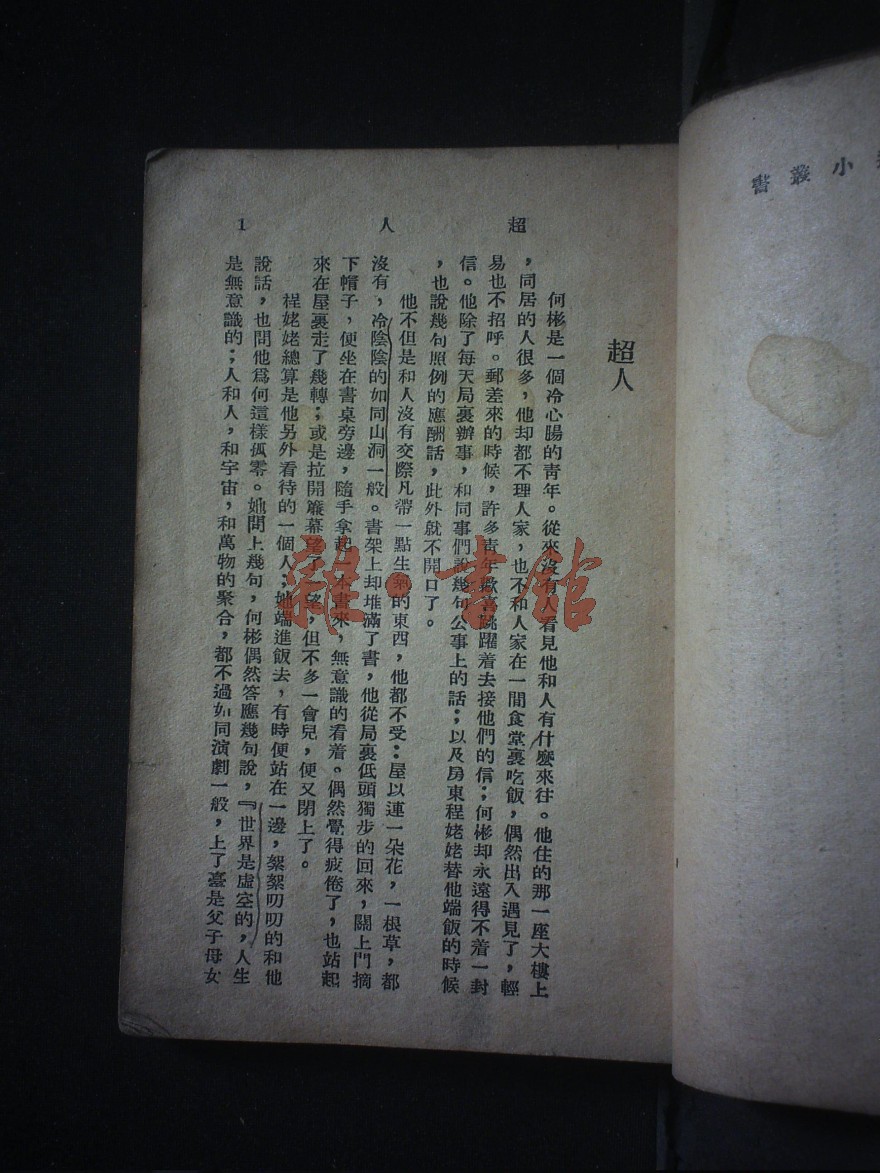 小叢書
超人 1
超人
何彬是一個冷心腸的青年。從來沒有人看見他和人有什麼來往。他住的那一座大樓上
，同居的人很多，他却都不理人家，也不和人家在一間食堂裏吃飯，偶然出入遇見了，輕
易也不招呼。郵差來的時候，許多青年歡喜跳躍着去接他們的信；何彬却永遠得不着一封
信。他除了每天局裏辦事，和同事們說幾句公事上的話；以及房東程姥姥替他端飯的時候
，也說幾句照例的應酬話，此外就不開口了。
他不但是和人沒有交際凡帶一點生氣的東西，他都不受：屋以連一朵花，一根草，都
沒有，冷陰陰的如同山洞一般。書架上却堆滿了書，他從局裏低頭獨步的回來，關上門摘
下帽子，便坐在書桌旁邊，隨手拿起一本書來，無意識的看着。偶然覺得疲倦了，也站起
來在屋裏走了幾轉；或是拉開簾幕望了一望，但不多一會兒，便又閉上了。
程姥姥總算是他另外看待的一個人；她端進飯去，有時便站在一邊，絮絮叨叨的和他
說話，也問他爲何這樣孤零。她問上幾句，何彬偶然答應幾句說，『世界是虛空的，人生
是無意識的；人和人，和宇宙，和萬物的聚合，都不過如同演劇一般，上了臺是父子母女
雜·書館